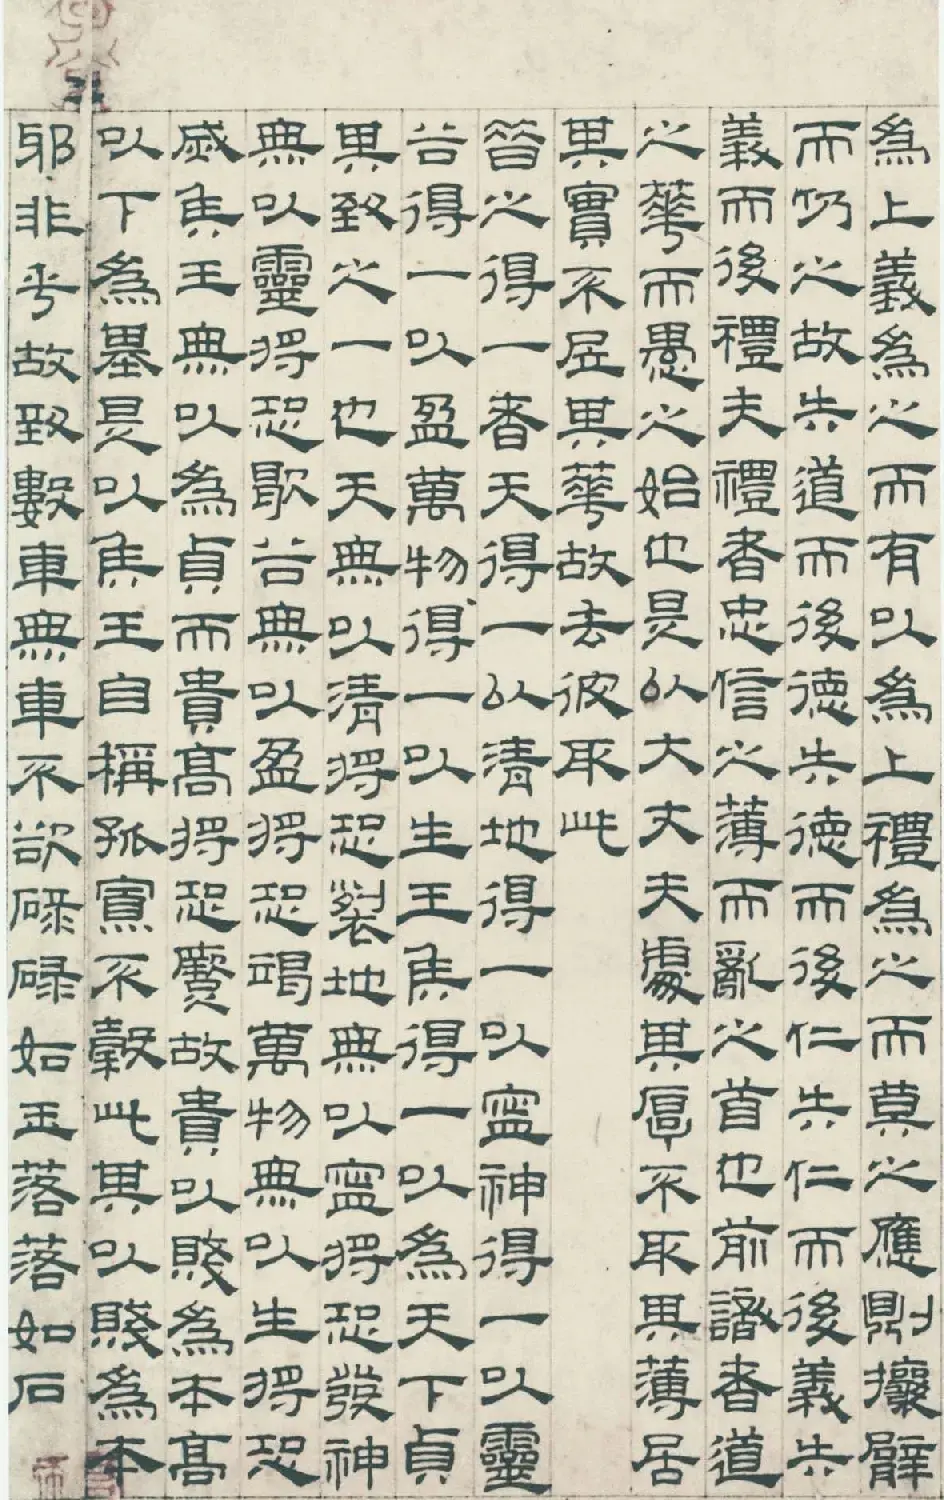 為上義為之而有以為上禮為之而莫之應則攘臂
而仍之故失道而後德失德而後仁失仁而後義失
義而後禮夫禮者忠信之薄而亂之首也前識者道
之華而愚之始也是以大丈夫處其厚不取其薄居
其實不居其華故去彼取此
昔之得一者天得一以清地得一以寧神得一以靈
谷得一以盈萬物得一以生王侯得一以為天下貞
其致之一也天無以清將恐裂地無以寧將恐發神
無以靈將恐歇谷無以盈將恐竭萬物無以生將恐
滅侯王無以為貞而貴高將恐蹷故貴以賤為本高
以下為基是以侯王自稱孤寡不穀此其以賤為本
邪非乎故致數車無車不欲碌碌如玉落落如石